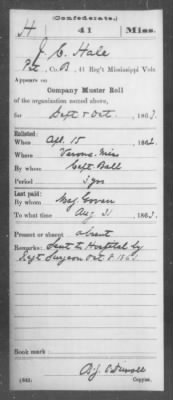 (Confederate.)
H 41 Miss.
J. C. Hale
Pvt, Co. B, 41 Reg't Mississippi Vols.
Appears on
Company Muster Roll
of the organization named above,
for Sept & Oct, 1863.
Enlisted:
When Apl 15, 1862.
Where Verona, Miss
By whom Capt. Ball
Period 3 yrs
Last paid:
By whom Maj Goven
To what time Aug 31, 1863.
Present or absent absent
Remarks: Sent to Hospital by
Regt Surgeon Oct 8 1863
Book mark:
(642)
Copyist.